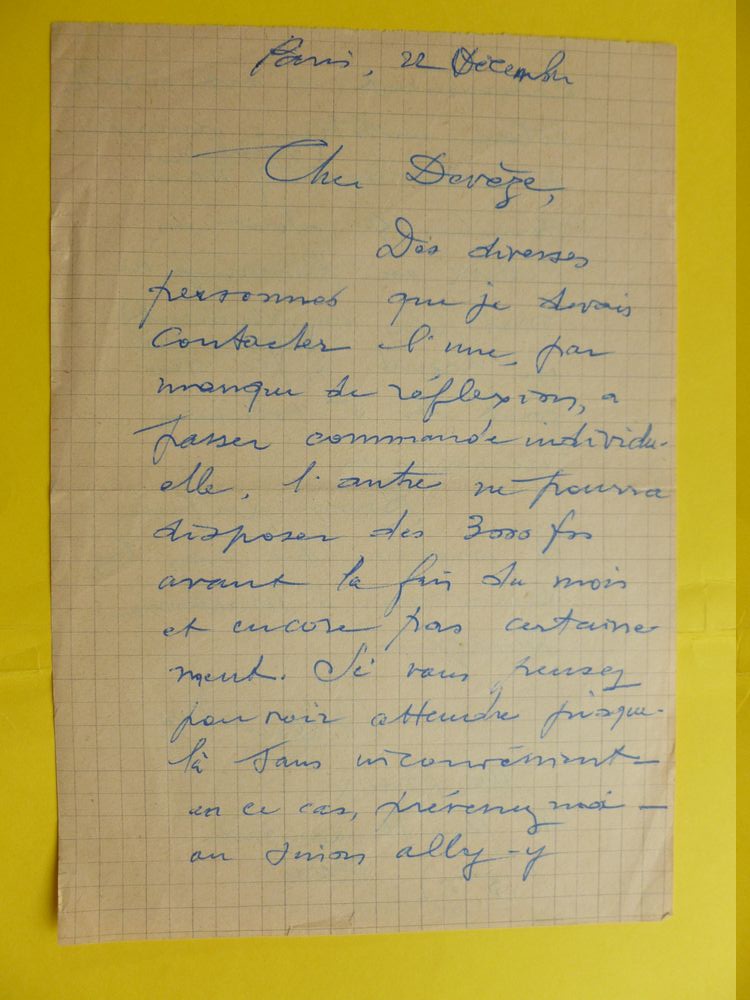 Paris, 22 Décembre
Cher Devèze,
Des diverses
personnes que je devais
contacter l'une, par
manque de réflexion, a
passer commande individu-
elle, l'autre ne pourra
disposer des 3000 frs
avant la fin du mois
et encore pas certaine-
ment. Si vous pensez
pouvoir attendre jusque-
là sans inconvénient -
en ce cas, prévenez moi -
ou sinon allez-y